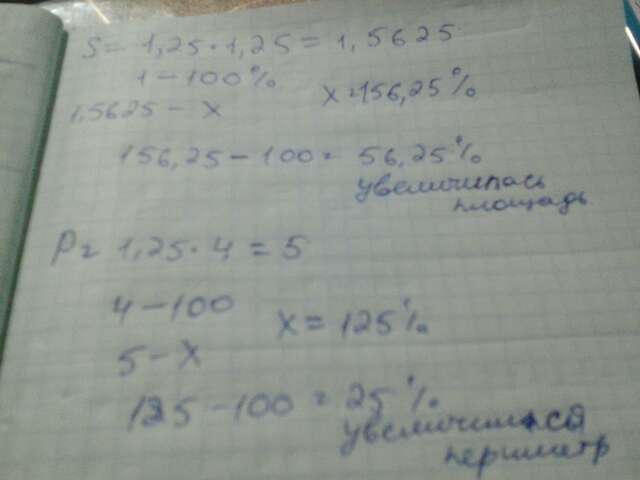 S = 1,25 · 1,25 = 1,5625
1 – 100%
1,5625 – x
x = 156,25%
156,25 – 100 = 56,25%
увеличилась
площадь
P = 1,25 · 4 = 5
4 – 100
5 – x
x = 125%
125 – 100 = 25%
увеличился
периметр